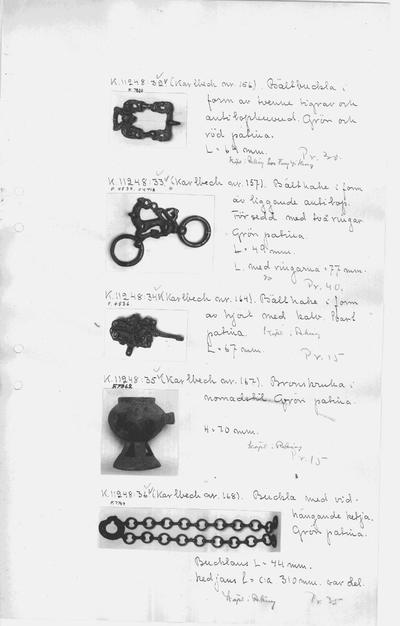 K.11248:32 (Karlbeck nr. 156). Bältbuckla i
form av tvenne tigrar och
antilophuvud. Grön och
röd patina.
L = 64 mm. Pr. 30.
K.11248:33 (Karlbeck nr. 157). Bälthake i form
av liggande antilop.
Försedd med två ringar
Grön patina
L = 49 mm.
L. med ringarna = 77 mm.
Pr. 40.
K.11248:34 (Karlbeck nr. 164). Bälthake i form
av hjort med kalv. Svart
patina.
L = 67 mm. Pr. 15
K.11248:35 (Karlbeck nr. 167). Bronskruka i
nomadstil. Grön patina.
H = 70 mm.
Pr. 15
K.11248:36 (Karlbeck nr. 168). Buckla med vid-
hängande kedja.
Grön patina.
Bucklans L = 44 mm.
Kedjans L = ca 310 mm. var del.
Pr. 35